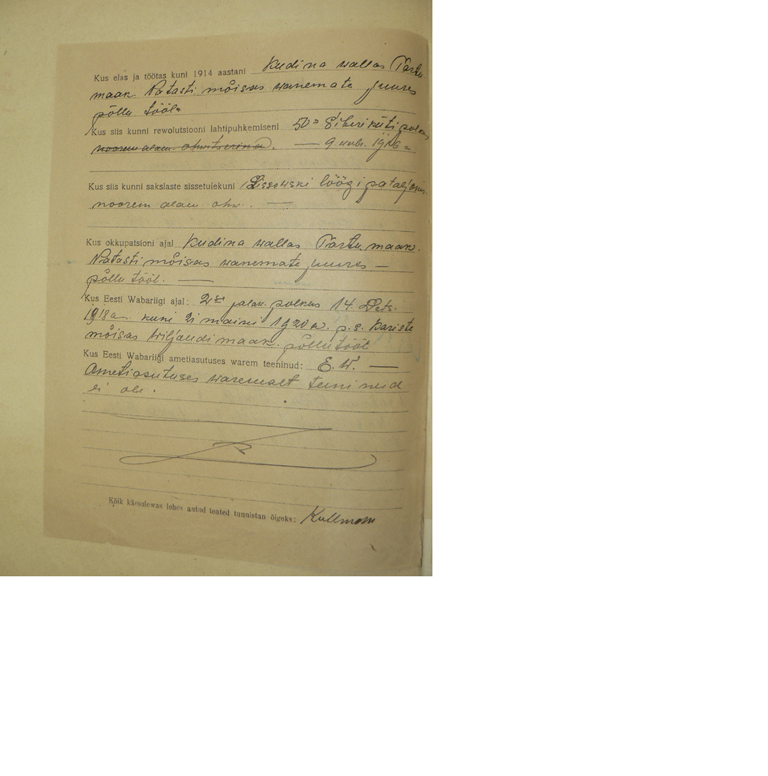 Kus elas ja töötas kuni 1914 aastani Kudina wallas Tartu
maak. Ratasti mõisas wanemate juures
põllu tööl.
Kus siis kunni rewolutsiooni lahtipuhkemiseni 50ⁿ Siberi küti polgus
nooremalam. ohwitserina. — 9 1916 a
Kus siis kunni sakslaste sissetulekuni löögi pataljonis.
noorem alam ohw. —
Kus okkupatsioni ajal Kudina wallas Tartu maak.
Ratasti mõisas wanemate juures —
põllu tööl. —
Kus Eesti Wabariigi ajal: 2se jalaw. polkus 14. Dets.
1918 a. kuni 21 maini 1920 a. p. s. Kariste
mõisas Wiljandi maak. põllu tööl
Kus Eesti Wabariigi ametiasutuses warem teeninud: E. W. —
Ametiasutuses waremalt teeninud
ei ole.
Kõik käesolewas lehes antud teated tunnistan õigeks: Kullmann